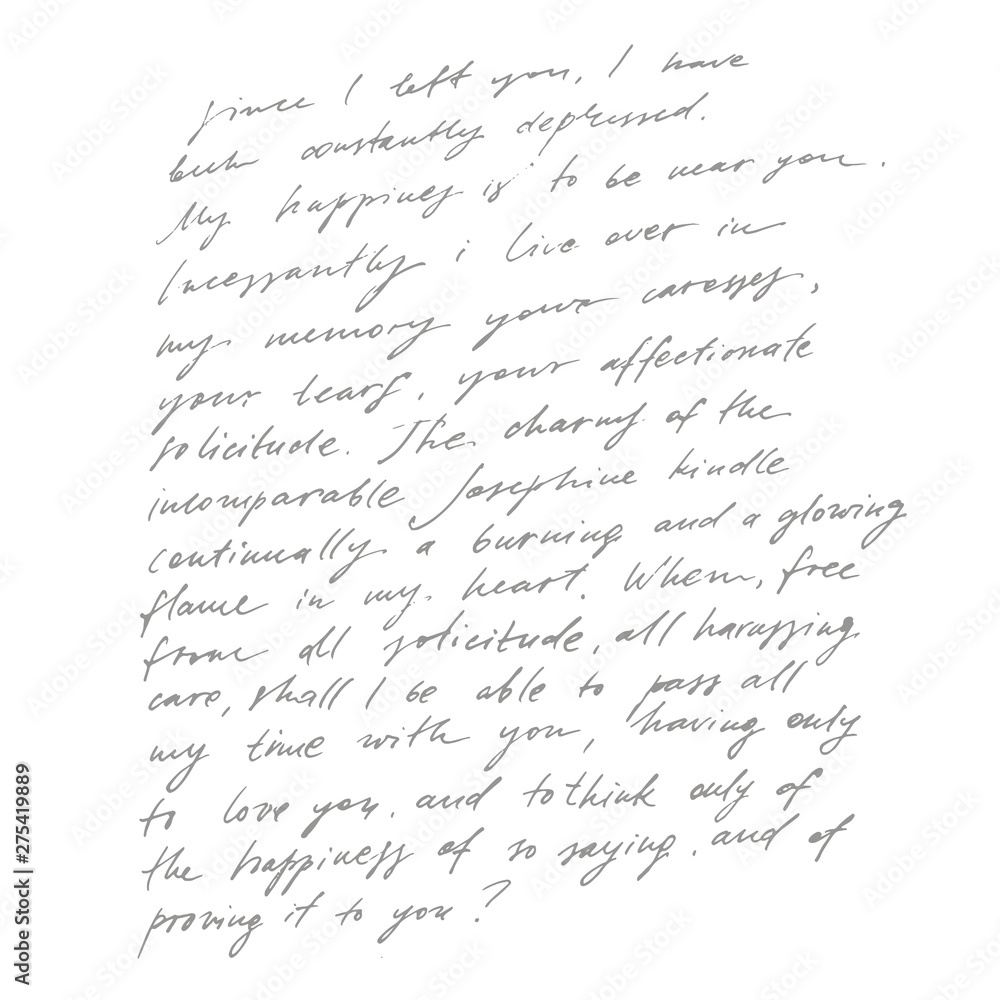 since I left you, I have
been constantly depressed.
My happines is to be near you.
Incessantly i live over in
my memory your caresses,
your tears, your affectionate
solicitude. The charms of the
incomparable Josephine kindle
continually a burning and a glowing
flame in my heart. When, free
from all solicitude, all harassing
care, shall I be able to pass all
my time with you, having only
to love you, and to think only of
the happiness of so saying, and of
proving it to you?
Adobe Stock | #275419889